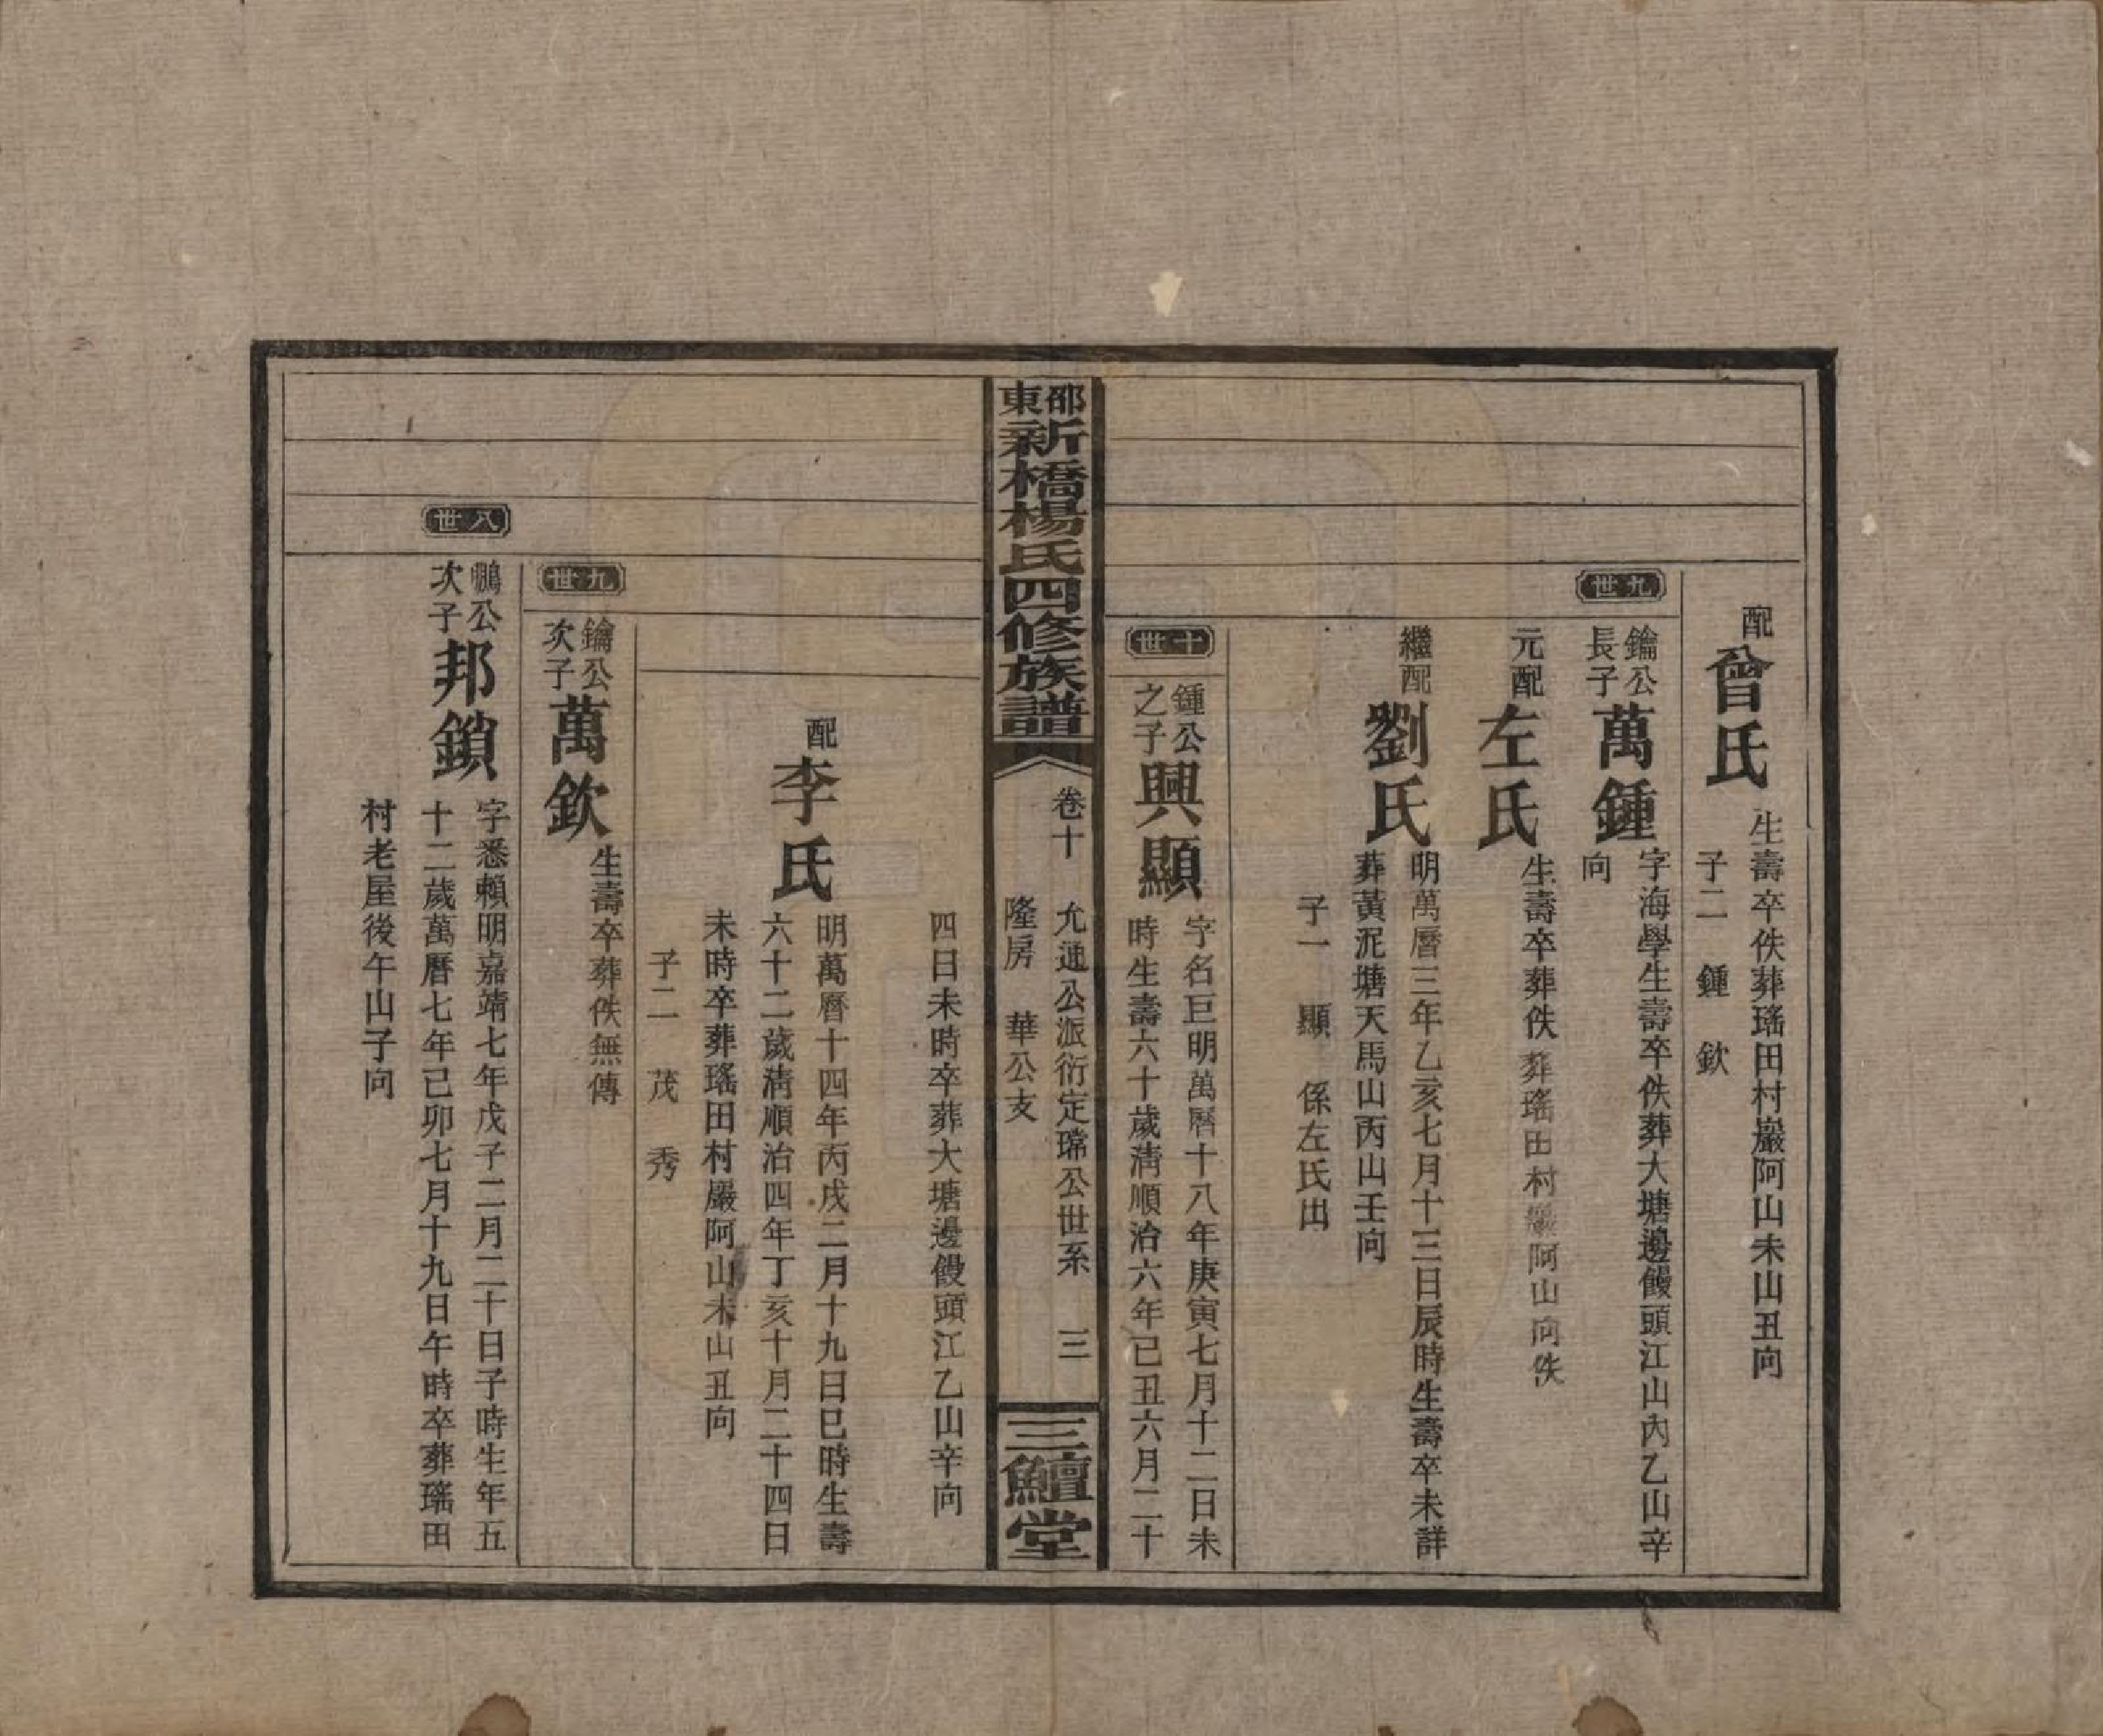 配 曾氏 生壽卒佚葬瑤田村巖阿山未山丑向
子二 鍾 欽
九世
鑰公長子 萬鍾 字海學生壽卒佚葬大塘邊饅頭江山內乙山辛
向
元配 左氏 生壽卒葬佚葬瑤田村巖阿山向佚
繼配 劉氏 明萬曆三年乙亥七月十三日辰時生壽卒未詳
葬黃泥塘天馬山丙山壬向
子一 顯 係左氏出
十世
鍾公之子 興顯 字名巨明萬曆十八年庚寅七月十二日未
時生壽六十歲清順治六年己丑六月二十
邵東新橋楊氏四修族譜
卷十 允通公派衍定瑺公世系 三
隆房 華公支
三鱣堂
四日未時卒葬大塘邊饅頭江乙山辛向
配 李氏 明萬曆十四年丙戌二月十九日巳時生壽
六十二歲清順治四年丁亥十月二十四日
未時卒葬瑤田村巖阿山未山丑向
子二 茂 秀
九世
鑰公次子 萬欽 生壽卒葬佚無傳
八世
鵬公次子 邦鎖 字悉賴明嘉靖七年戊子二月二十日子時生年五
十二歲萬曆七年己卯七月十九日午時卒葬瑤田
村老屋後午山子向